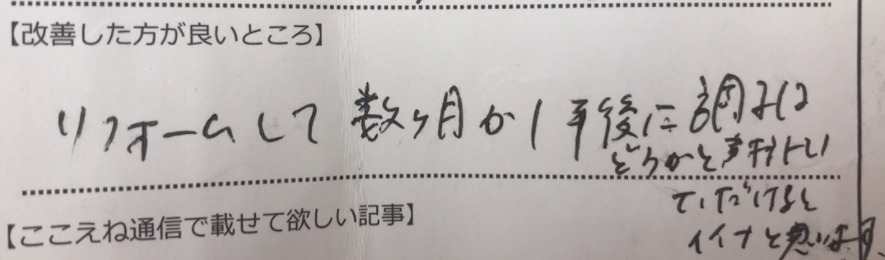 【改善した方が良いところ】
リフォームして数ヶ月か1年後に調子は
どうかと声掛けい
ていただけると
イイナと思います
【ここえね通信で載せて欲しい記事】